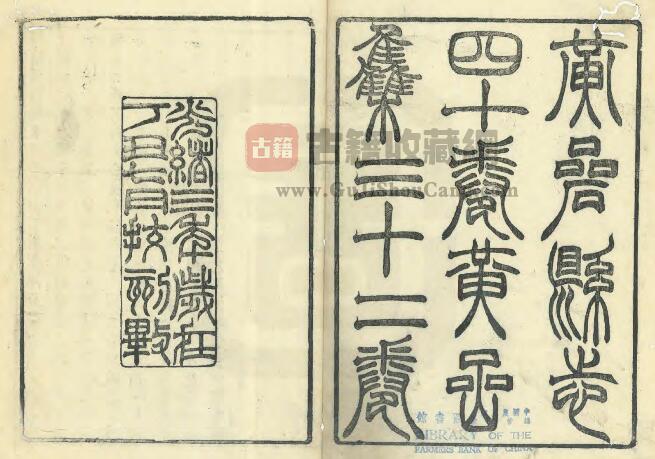 黃嵒縣志
四十卷黃嵒
雧三十二卷
光緒三年歲在
丁丑七月挍刻畢
古籍
古籍收藏網
www.GuJiShouCang.com
LIBRARY OF THE
FARMERS BANK OF CHINA